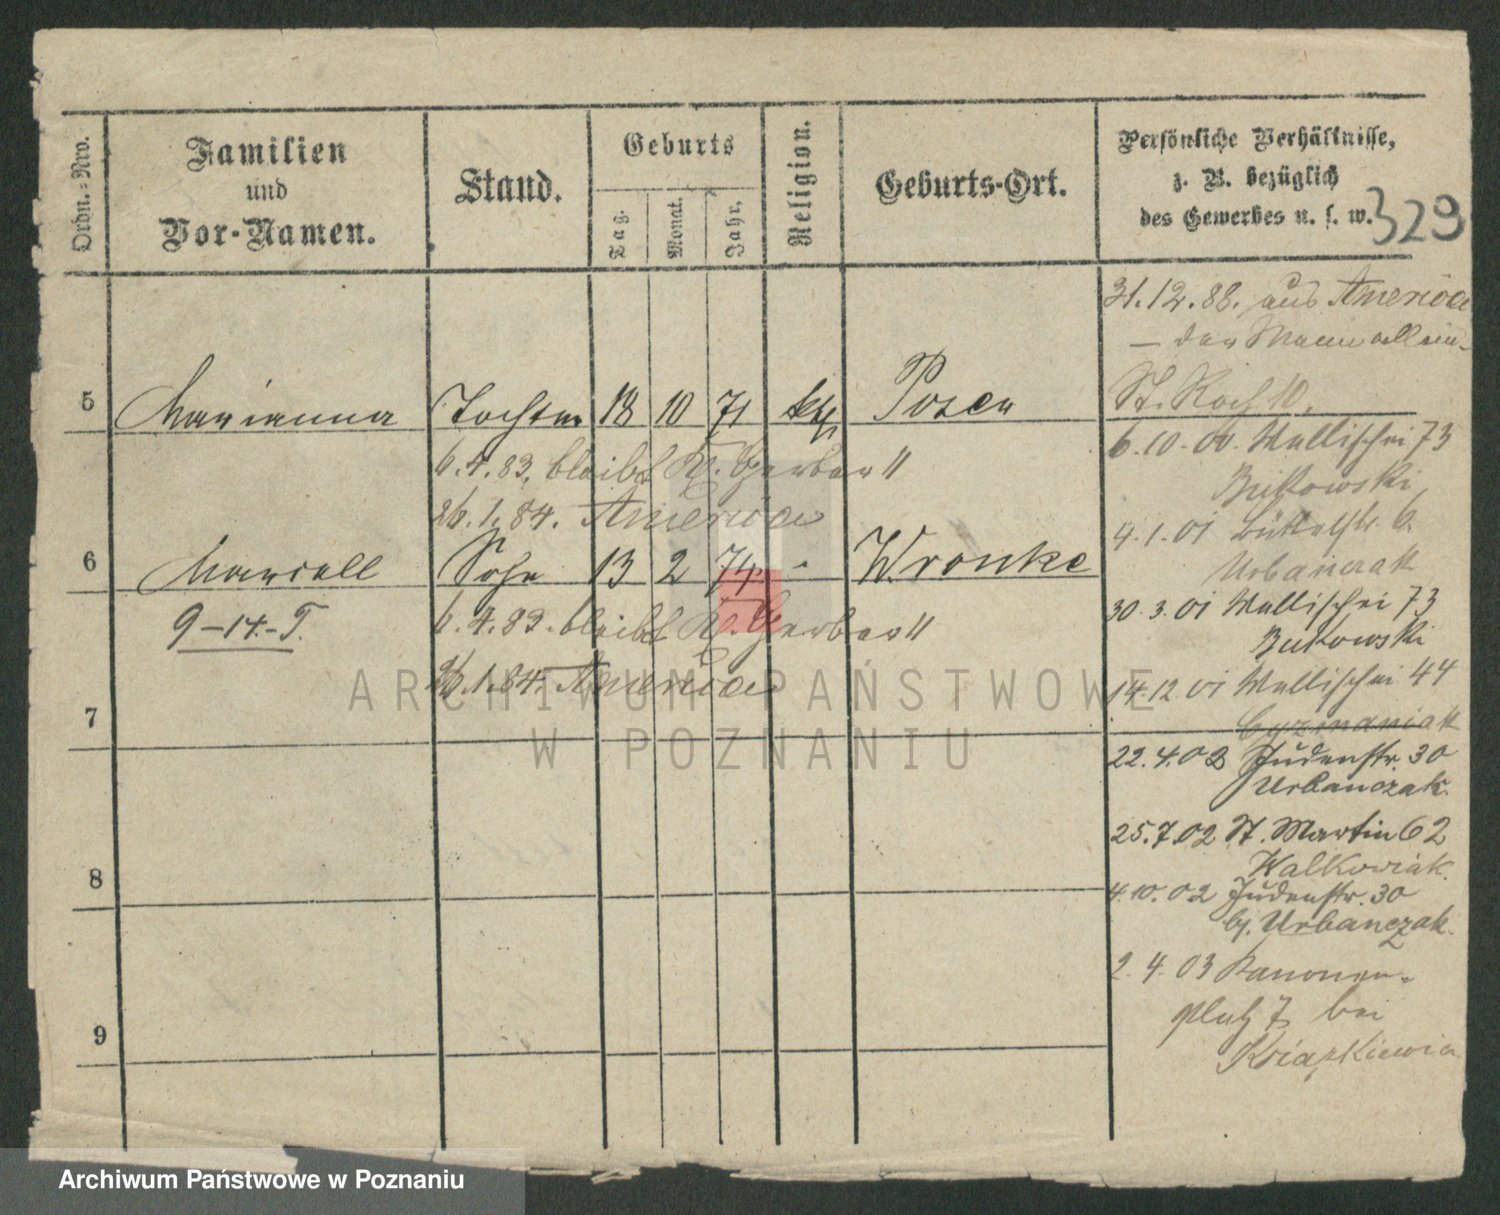 Ordn.=Nro.
Familien
und
Vor-Namen.
Stand.
Geburts
Tag.
Monat.
Jahr.
Religion.
Geburts-Ort.
Persönliche Verhältnisse,
z. B. bezüglich
des Gewerbes u. s. w.
329
31.12.88. aus America
— der Mann allein.
St. Roch 10.
5 Marianna Tochter 18 10 71 kath Posen
6.4.83. bleibt Kl. Gerber 11
26.1.84. America
6 Marcell Sohn 13 2 74 " Wronke
9-14.-T.
6.4.83. bleibt Kl. Gerber 11
26.1.84. America
7
8
9
6.10.00. Wallischei 73
Butkowski
4.1.01 6.
Urbanczak
30.3.01 Wallischei 73
Butkowski
14.12.01 Wallischei 44
22.4.02 Judenstr. 30
Urbanczak.
25.7.02 St. Martin 62
Walkowiak.
4.10.02 Judenstr. 30
bj. Urbanczak.
2.4.03 Kanonen-
platz 7 bei
Ksiazkiewicz
ARCHIWUM PAŃSTWOWE
W POZNANIU
Archiwum Państwowe w Poznaniu